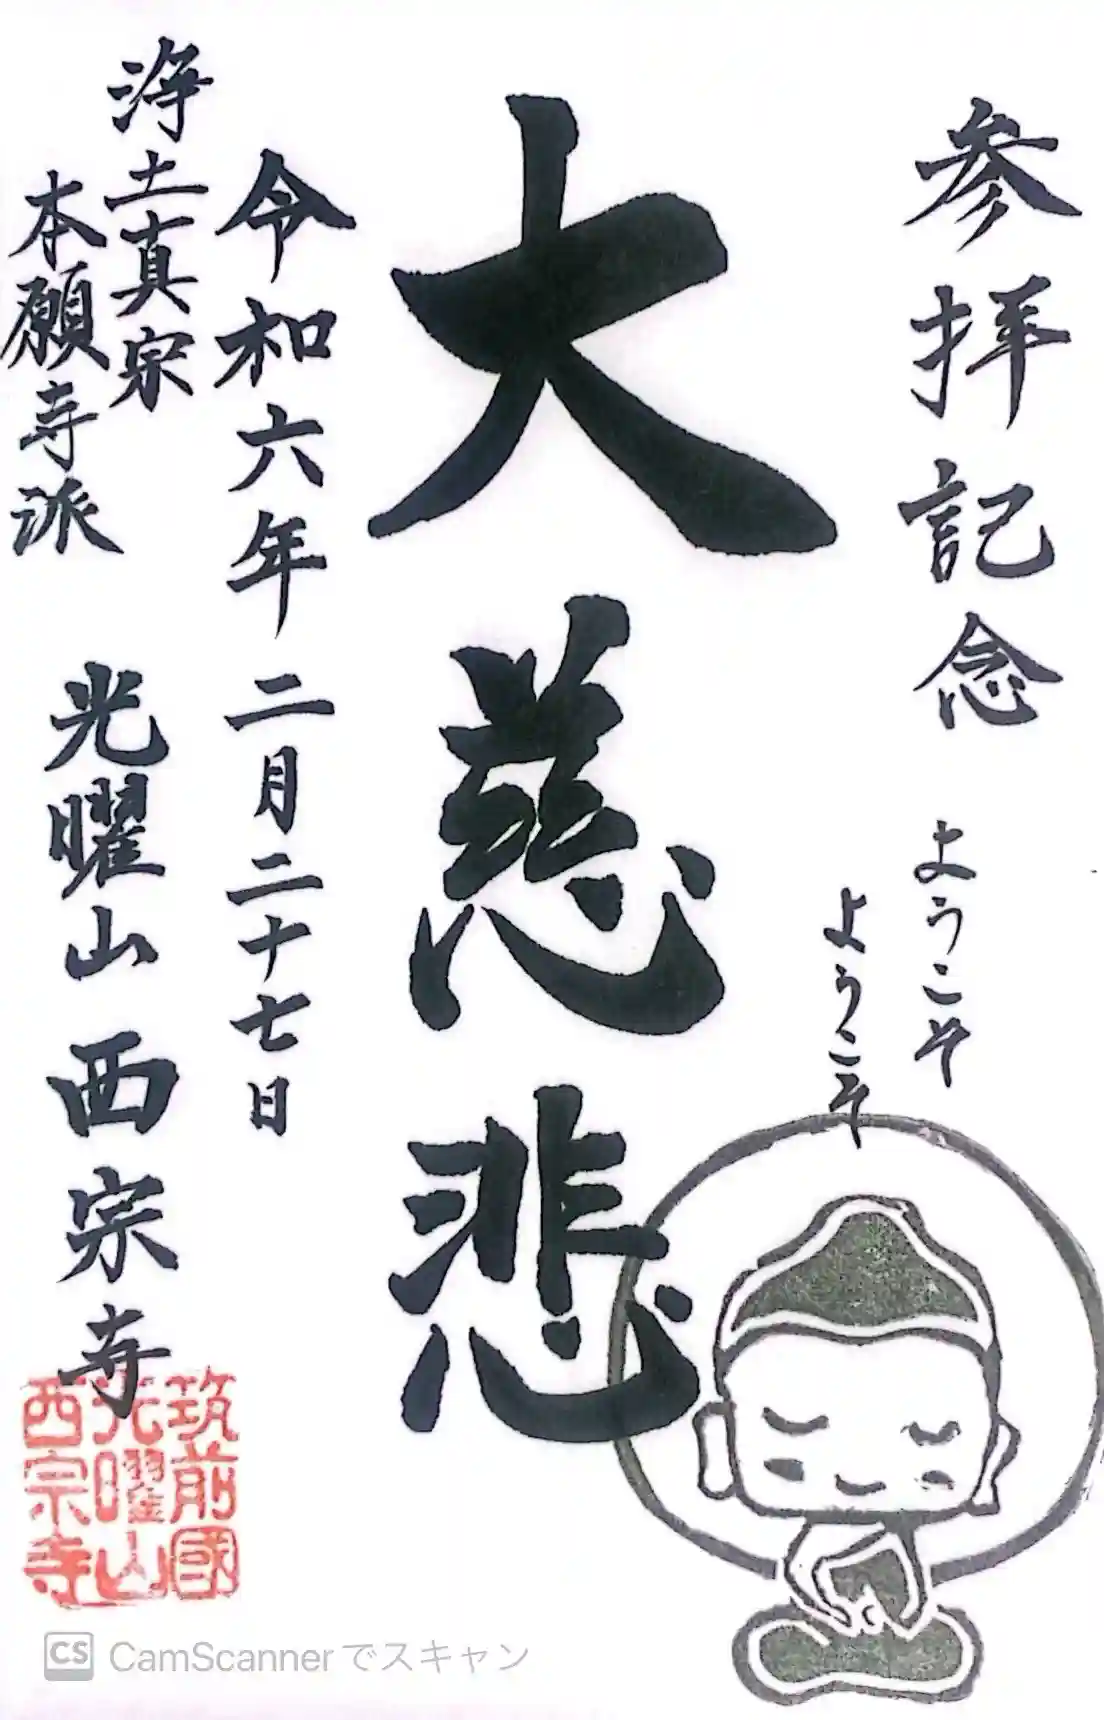 参拝記念
ようこそ
ようこそ
大慈悲
令和六年二月二十七日
浄土真宗
本願寺派
光曜山 西宗寺
筑前國
光曜山
西宗寺
CS CamScannerでスキャン